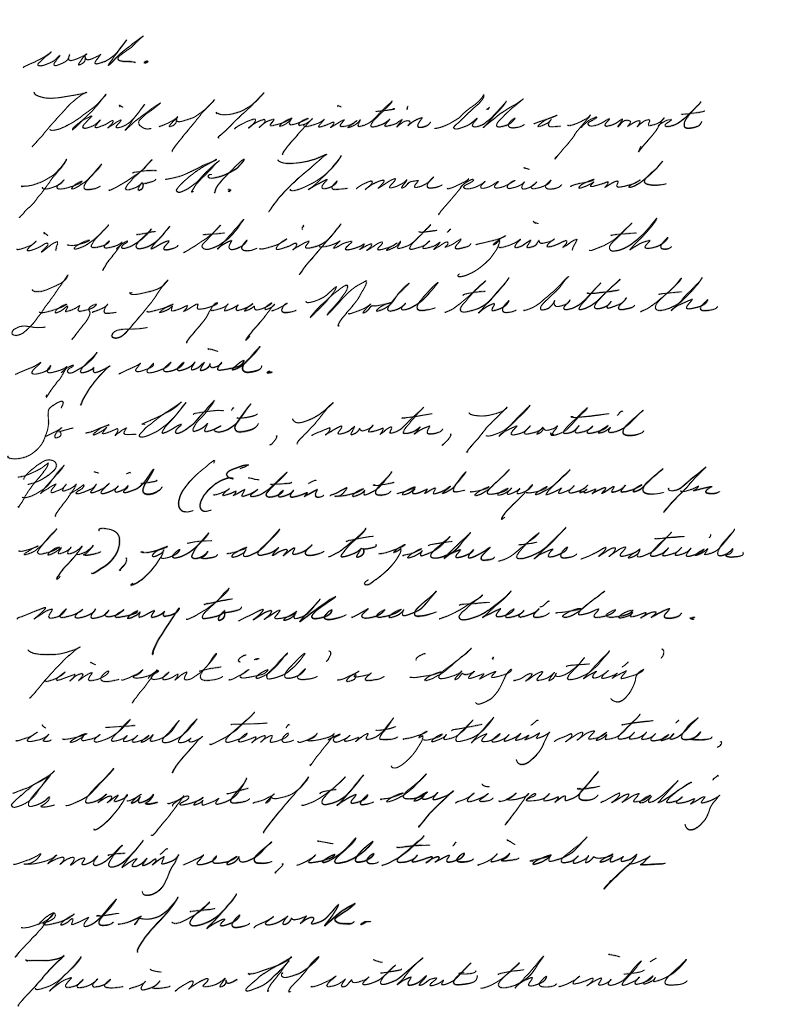 work.
Think of Imagination like a prompt
fed to AI. The more precise and
in-depth the information given the
Large Language Model the better the
reply received.
So an Artist, Inventor, Theoretical
Physicist (Einstein sat and daydreamed for
days), gets alone to gather the materials
necessary to make real their dream.
Time spent 'idle' or 'doing nothing'
is actually time spent gathering materials,
As long as part of the day is spent making
something real, idle time is always
part of the work.
There is no AI without the initial